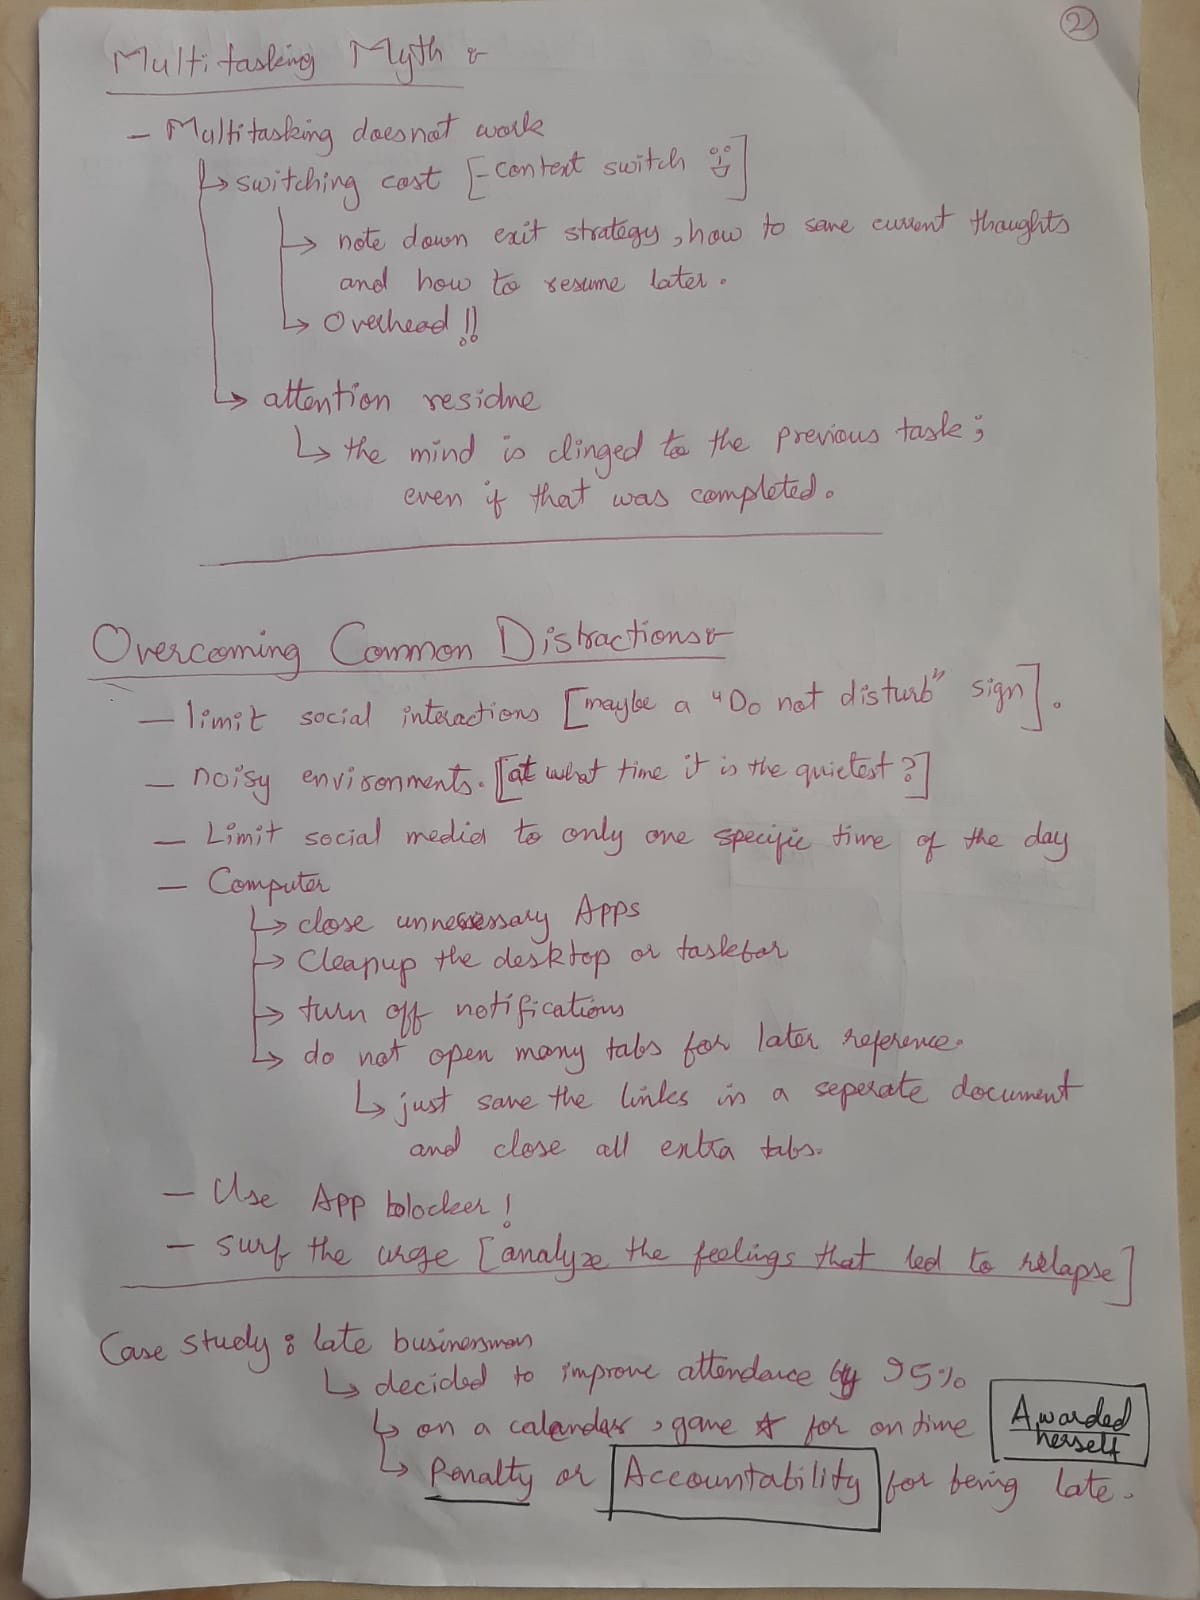 2
Multitasking Myth :-
- Multitasking doesnot work
↳ switching cost [-context switch ]
→ note down exit strategy, how to save current thoughts
and how to resume later.
↳ Overhead !!
↳ attention residue
↳ the mind is clinged to the previous task;
even if that was completed.
Overcoming Common Distractions:-
- limit social interactions [maybe a "Do not disturb" sign].
- noisy environments. [at what time it is the quietest?]
- Limit social media to only one specific time of the day
- Computer
↳ close unnecessary Apps
→ Cleanup the desktop or taskbar
→ turn off notifications
↳ do not open many tabs for later reference.
↳ just save the links in a seperate document
and close all extra tabs.
- Use App blocker!
- surf the urge [analyze the feelings that led to relapse]
Case study: late businessman
↳ decided to improve attendance by 95%
↳ on a calendar, gave ☆ for on time
Awarded
herself
↳ Penalty or Accountability for being late.